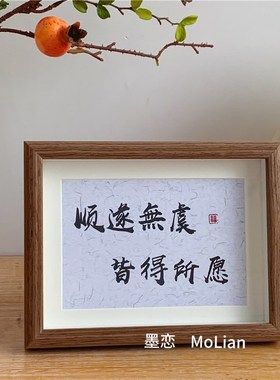 顺遂無虞
皆得所愿
墨恋 MoLian